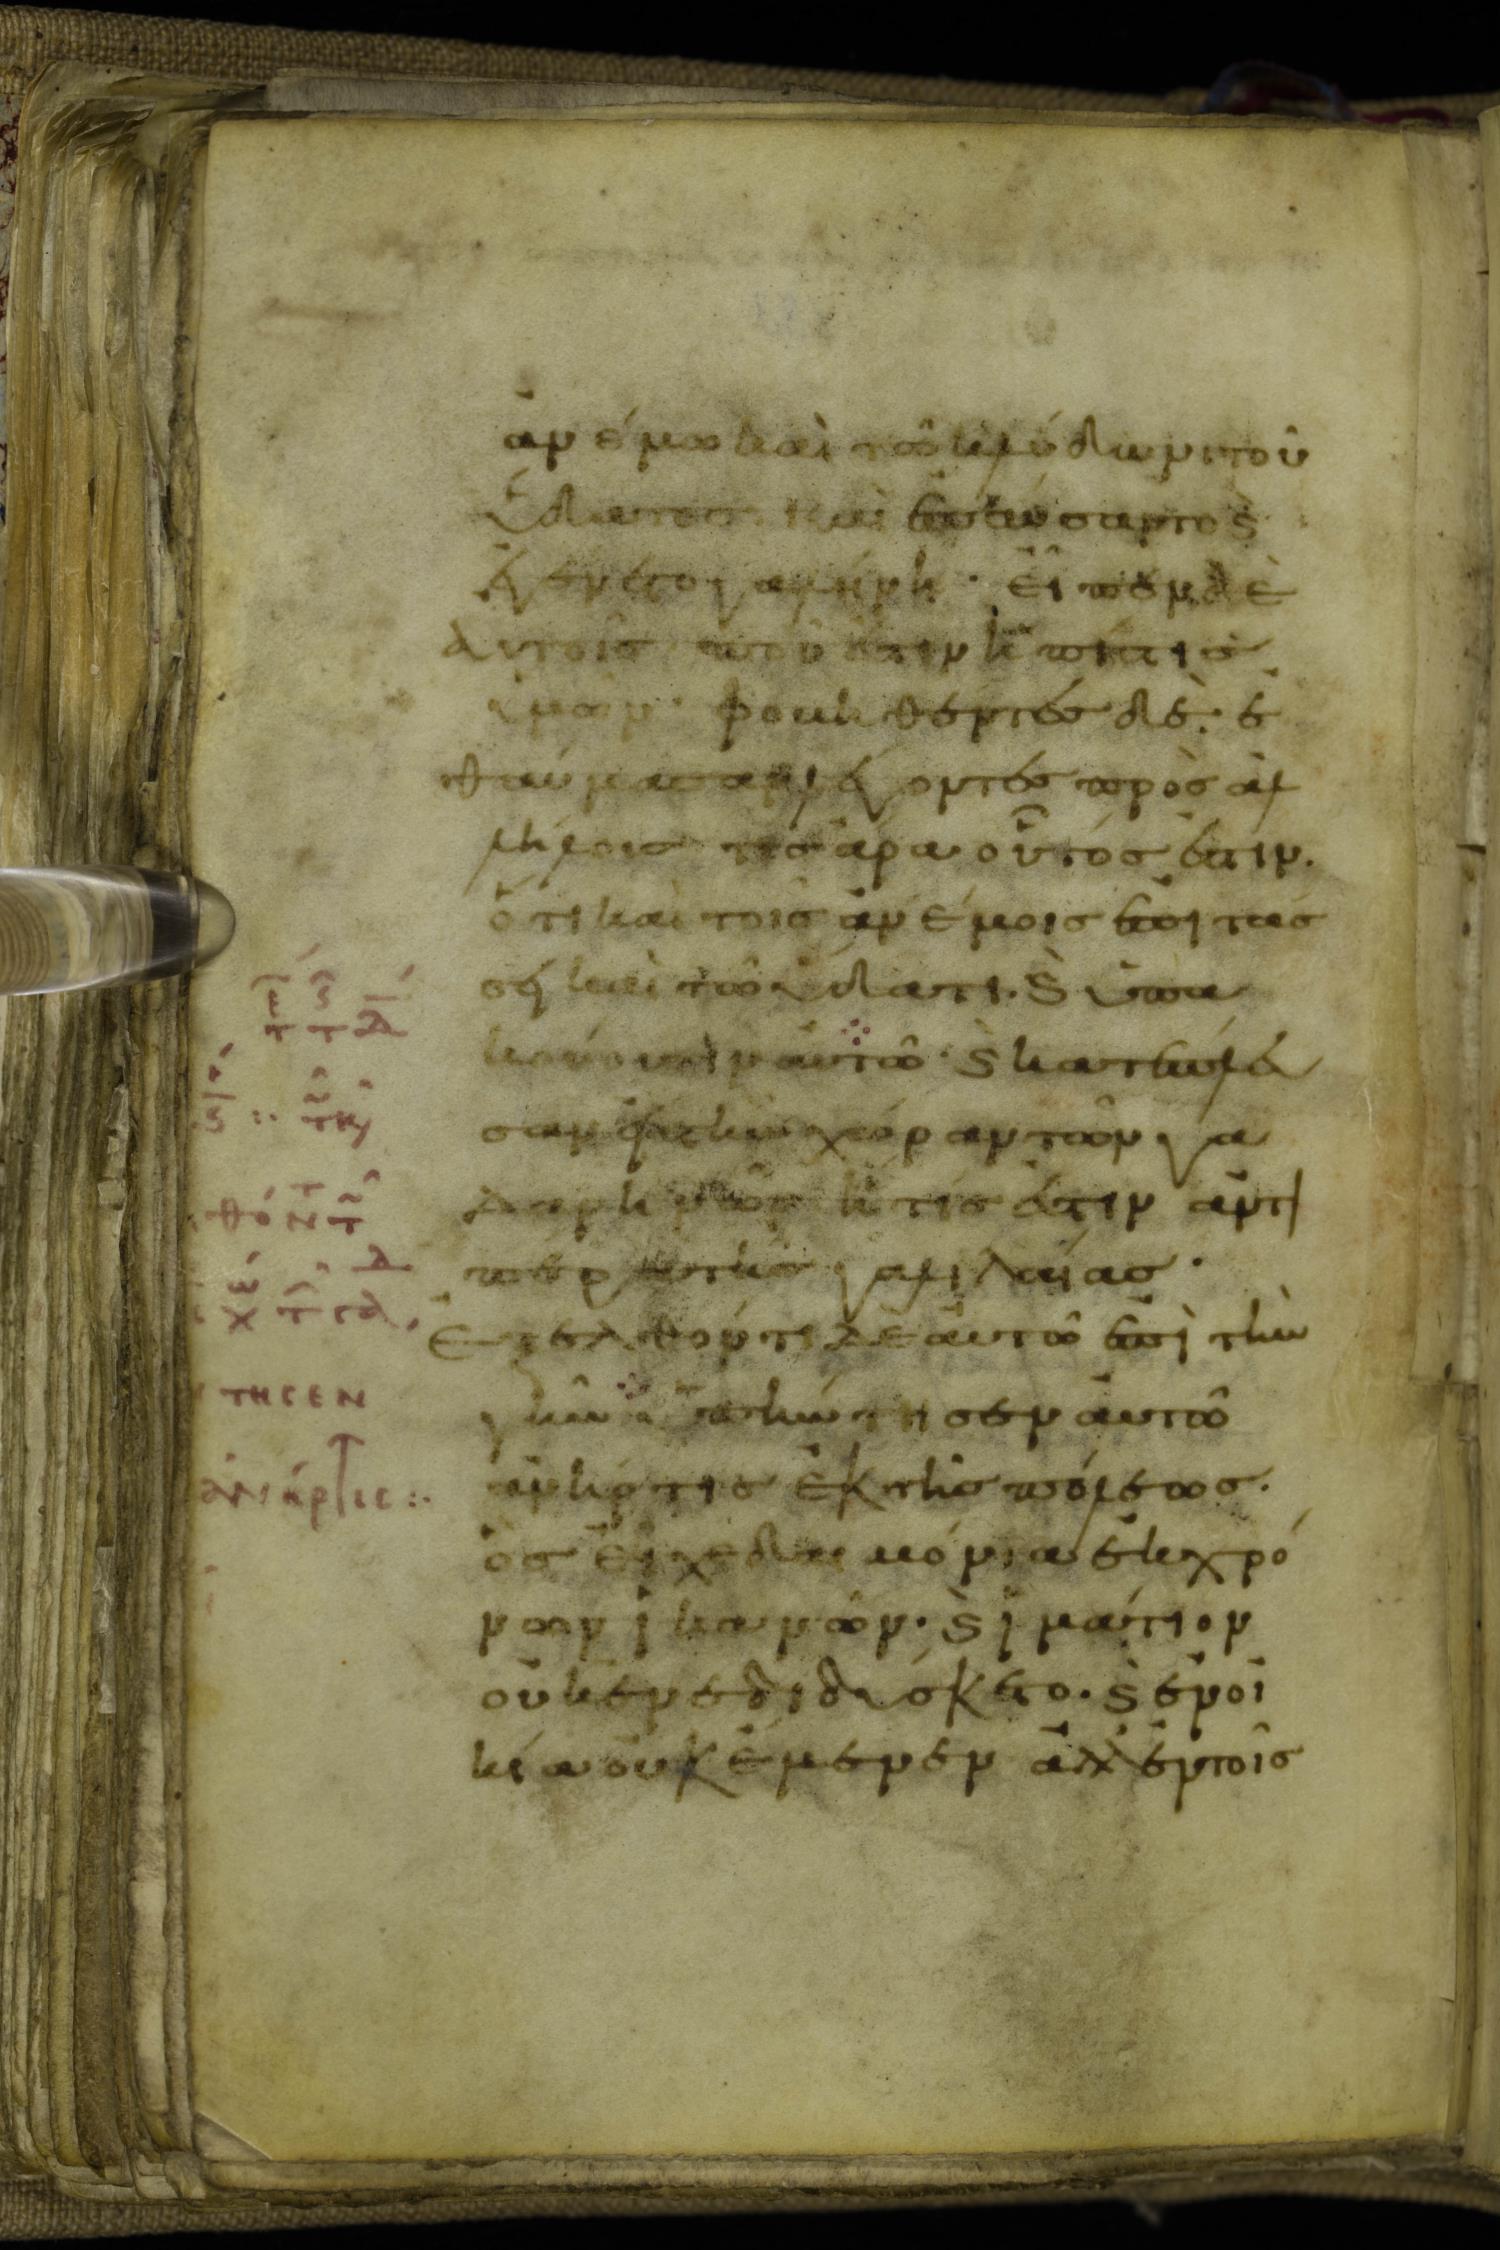 ἀνέμω καὶ τῶ κλύδωνι τοῦ
ὕδατος καὶ ἐπαύσαντο ϗ
ἐγένετο γαλήνη · εἶπεν δὲ
αυτοῖς ποῦ ἐστιν ἡ πίστις
ὑμῶν · φοβηθέντες δὲ · ἐ
θαύμασαν λέγοντες πρὸς ἀλ
λήλους τίς ἄρα οὗτός ἐστιν.
ὅτι καὶ τοῖς ἀνέμοις ἐπιτάσ
σει καὶ τῶ ὕδατι. ϗ ὑπα
κούουσιν αὐτῶ · ϗ κατέπλευ
σαν εἰς τὴν χώραν τῶν γα
δαρηνῶν ἥ τίς ἐστιν ἀντι
πέρα τῆς γαλιλαίας ·
ἐξελθόντι δὲ αὐτῶ ἐπὶ τὴν
γῆν ὑπήντησεν αὐτῶ
ἀνήρ τις ἐκ τῆς πόλεως.
ὃς εἶχε δαιμόνια ἐκ χρό
νων ἱκανῶν. ϗ ἱμάτιον
οὐκ ἐνεδιδύσκετο. ϗ ἐν οἰ
κία οὐκ ἔμενεν ἀλλ ἐν τοῖς
τησεν